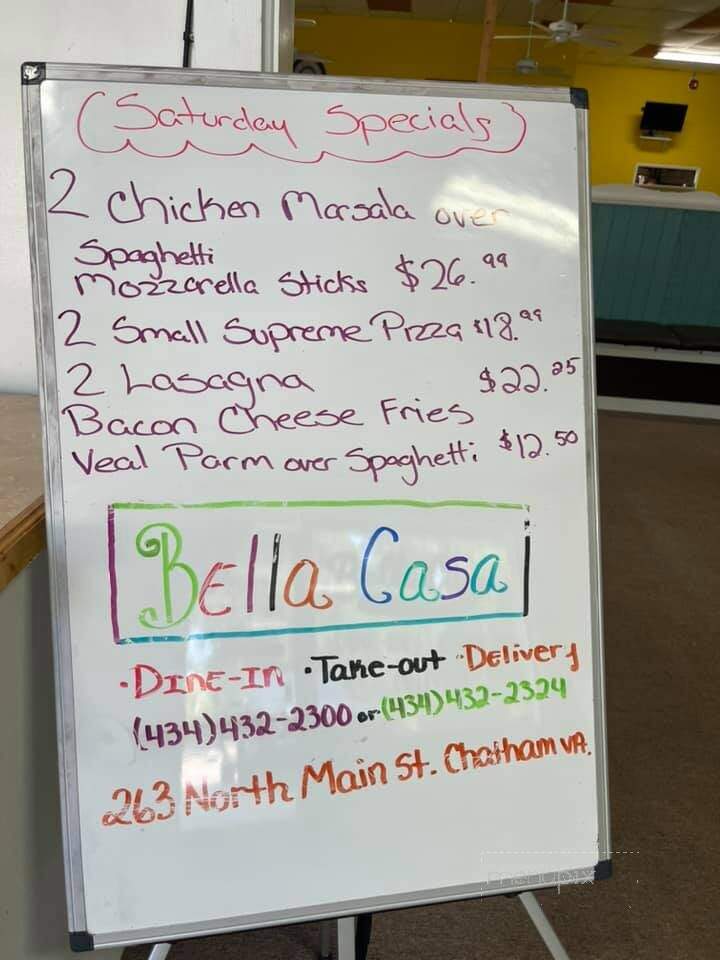 (Saturday Specials)
2 Chicken Marsala over
Spaghetti
Mozzarella Sticks $26.99
2 Small Supreme Pizza $18.99
2 Lasagna $22.25
Bacon Cheese Fries
Veal Parm over Spaghetti $12.50
Bella Casa
·Dine-In ·Take-out ·Delivery
(434)432-2300 or (434)432-2324
263 North Main St. Chatham VA.
menupix